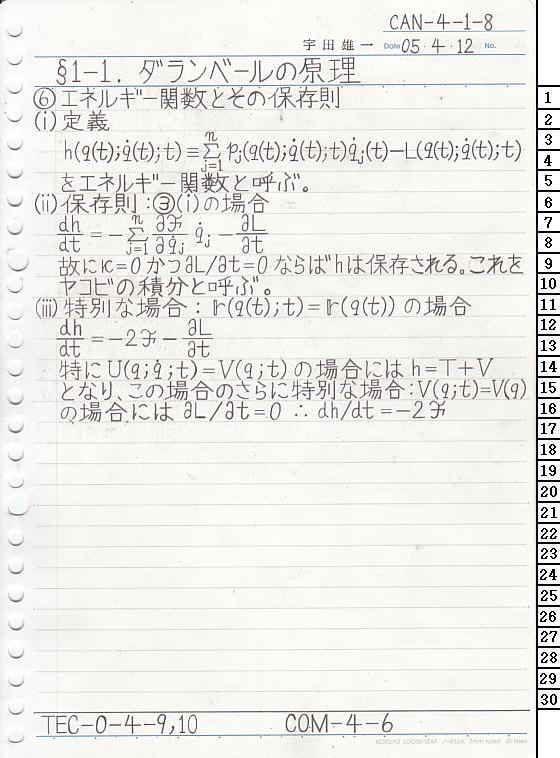 CAN-4-1-8
宇田雄一 Date 05・4・12 No.
§1-1. ダランベールの原理
⑥エネルギー関数とその保存則
(i) 定義
h(q(t);q̇(t);t)≡Σⁿⱼ₌₁ pⱼ(q(t);q̇(t);t)q̇ⱼ(t)−L(q(t);q̇(t);t)
をエネルギー関数と呼ぶ。
(ii) 保存則:③(i)の場合
dh/dt = −Σⁿⱼ₌₁ ∂ℱ/∂q̇ⱼ q̇ⱼ − ∂L/∂t
故にκ=0かつ∂L/∂t=0ならばhは保存される。これを
ヤコビの積分と呼ぶ。
(iii) 特別な場合:𝕣(q(t);t)=𝕣(q(t))の場合
dh/dt = −2ℱ − ∂L/∂t
特にU(q;q̇;t)=V(q;t)の場合にはh=T+V
となり、この場合のさらに特別な場合:V(q;t)=V(q)
の場合には ∂L/∂t=0 ∴ dh/dt=−2ℱ
TEC-0-4-9,10 COM-4-6
KOKUYO LOOSE-LEAF ノ-836A 7mm ruled 31 lines
1
2
3
4
5
6
7
8
9
10
11
12
13
14
15
16
17
18
19
20
21
22
23
24
25
26
27
28
29
30